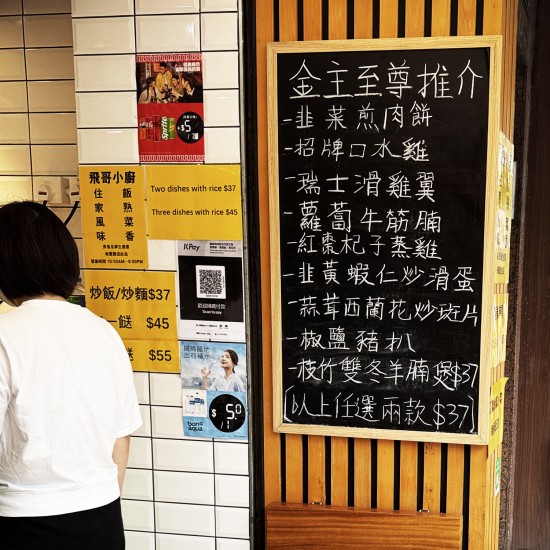 金主至尊推介
-韭菜煎肉餅
-招牌口水雞
-瑞士滑雞翼
-蘿蔔牛筋腩
-紅棗杞子蒸雞
-韭黃蝦仁炒滑蛋
-蒜茸西蘭花炒斑片
-椒鹽豬扒
-枝竹雙冬羊腩煲$37
(以上任選兩款$37)
Sprite
$5
飛哥小廚
住家風味
飯熟菜香
Two dishes with rice $37
Three dishes with rice $45
炒飯/炒麵$37
一餸 $45
$55
KPay
$5.0
bonaqua